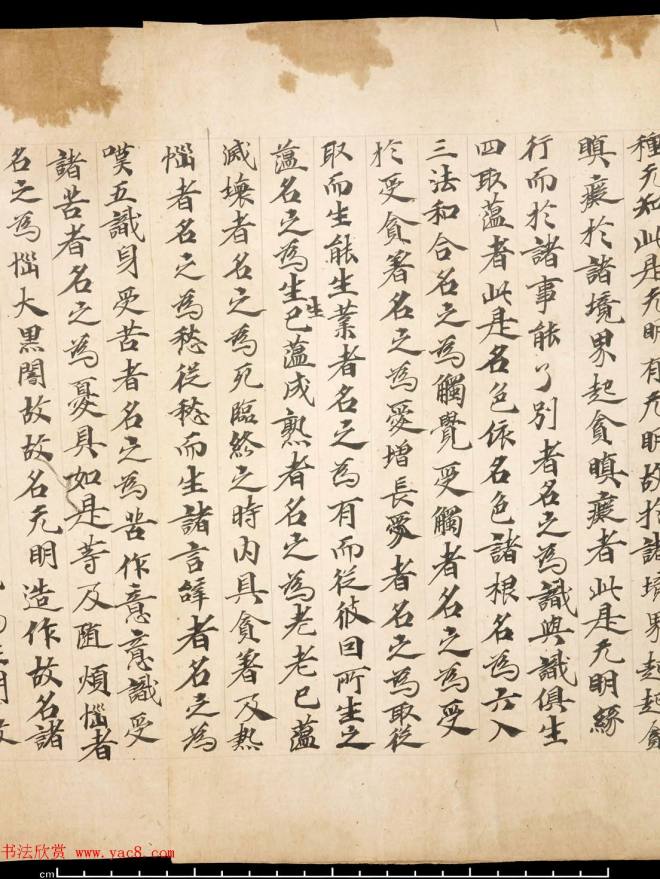 種无知此是无明有无明故於諸境界起起貪
瞋癡於諸境界起貪瞋癡者此是无明緣
行而於諸事能了別者名之為識與識俱生
四取蘊者此是名色依名色諸根名為六入
三法和合名之為觸覺受觸者名之為受
於受貪著名之為愛增長愛者名之為取從
取而生能生業者名之為有而從彼因所生之
蘊名之為生生已蘊成熟者名之為老老已蘊
滅壞者名之為死臨終之時內具貪著及熱
惱者名之為愁從愁而生諸言辭者名之為
嘆五識身受苦者名之為苦作意意識受
諸苦者名之為憂具如是等及隨煩惱者
名之為惱大黑闇故故名无明造作故名諸
书法欣赏 www.yac8.com
cm